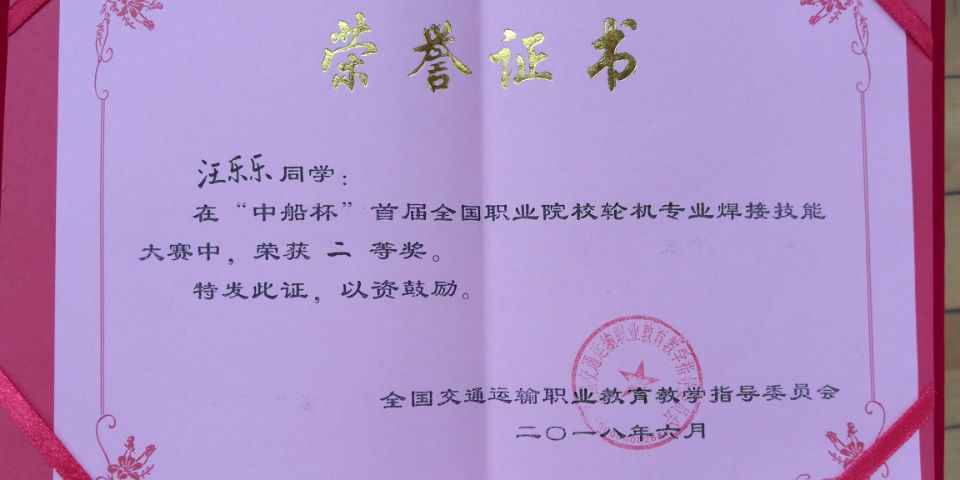 荣誉证书
汪乐乐同学：
在“中船杯”首届全国职业院校轮机专业焊接技能
大赛中，荣获 二 等奖。
特发此证，以资鼓励。
交通运输职业教育教学指导
全国交通运输职业教育教学指导委员会
二〇一八年六月